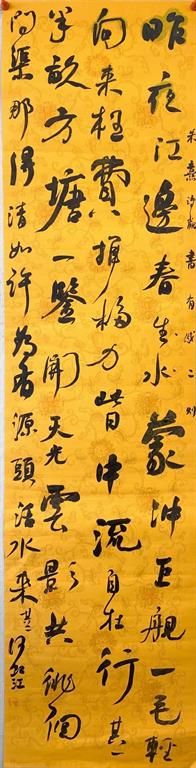 朱熹诗觀書有感二则
昨夜江邊春生水蒙冲巨艦一毛輕
向来枉費推移力此日中流自在行其一
半畝方塘一鑒開天光雲影共徘徊
問渠那得清如許為有源頭活水来其二